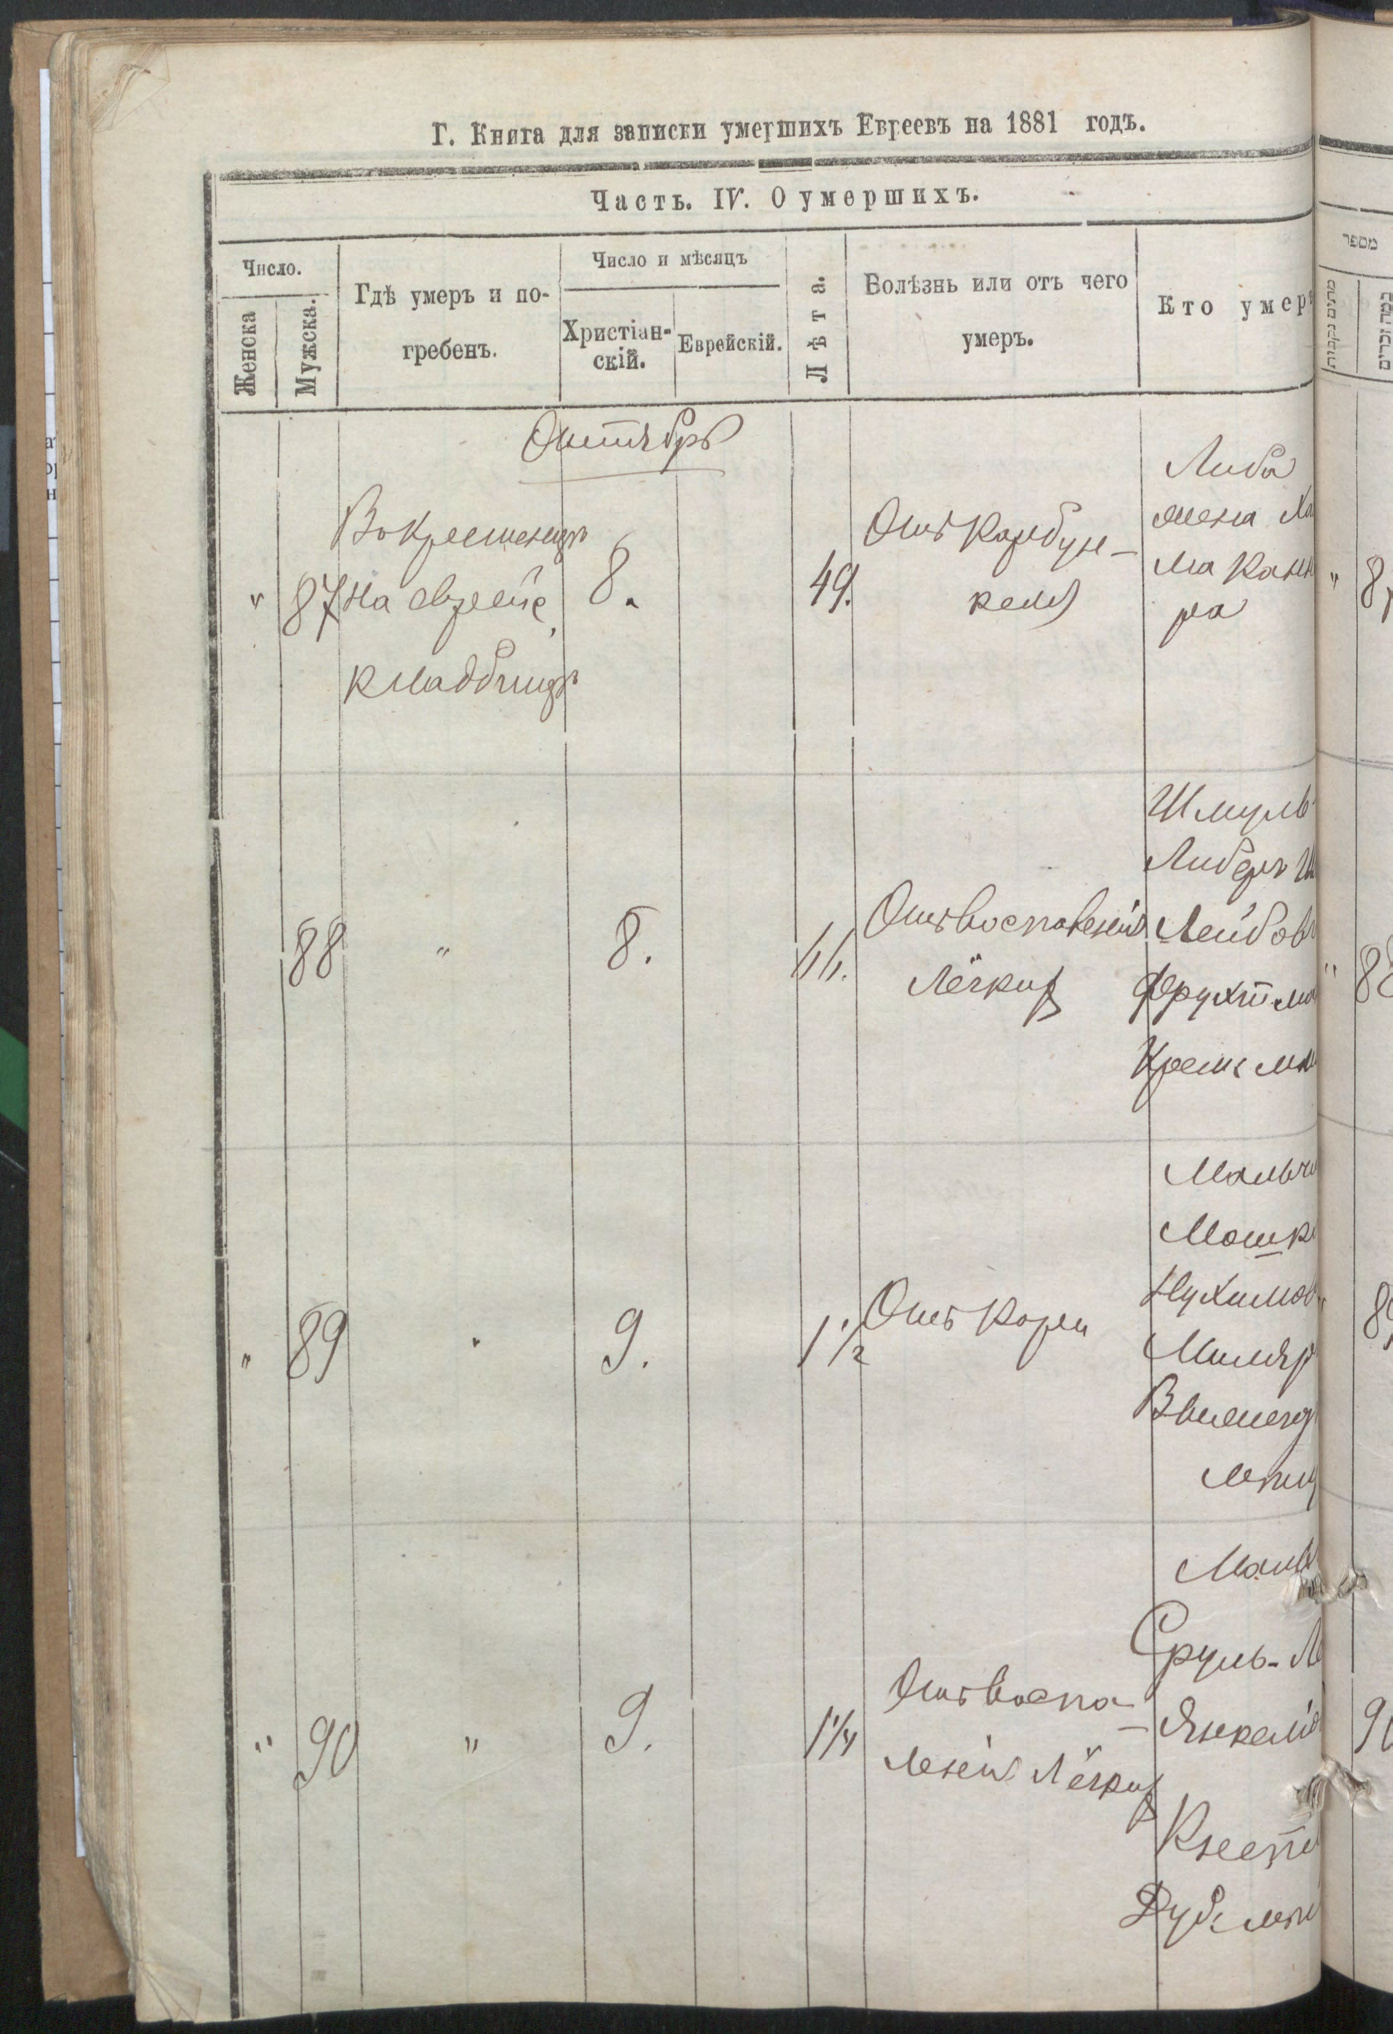 Г. Книга для записки умершихъ Евреевъ на 1881 годъ.
Часть. IV. О умершихъ.
Число.
Женска
Мужска.
Гдѣ умеръ и по-
гребенъ.
Число и мѣсяцъ
Христіан-
скій.
Еврейскій.
Лѣта.
Болѣзнь или отъ чего
умеръ.
Кто умер
מספר
Октябрь
" 87
Въ Кременцѣ
на еврейс.
кладбищѣ
8.
49.
Отъ карбун-
келя
Либа
жена Ха
ра
" 8
88 " 8.
11.
Отъ воспаленія
Лёгкихъ
Шмуль
Либеръ Ш
Лейбовъ
Фрухтма
Крем: мѣщ
" 88
" 89 " 9.
1 1/2
Отъ кори
Мальчи
Мошко
Нухимов
Миляр
89
" 90 " 9.
1 1/4
Отъ воспа-
ленія Лёгкихъ
Маль
Сруль-Л
Янкелiо
Дуб:
90